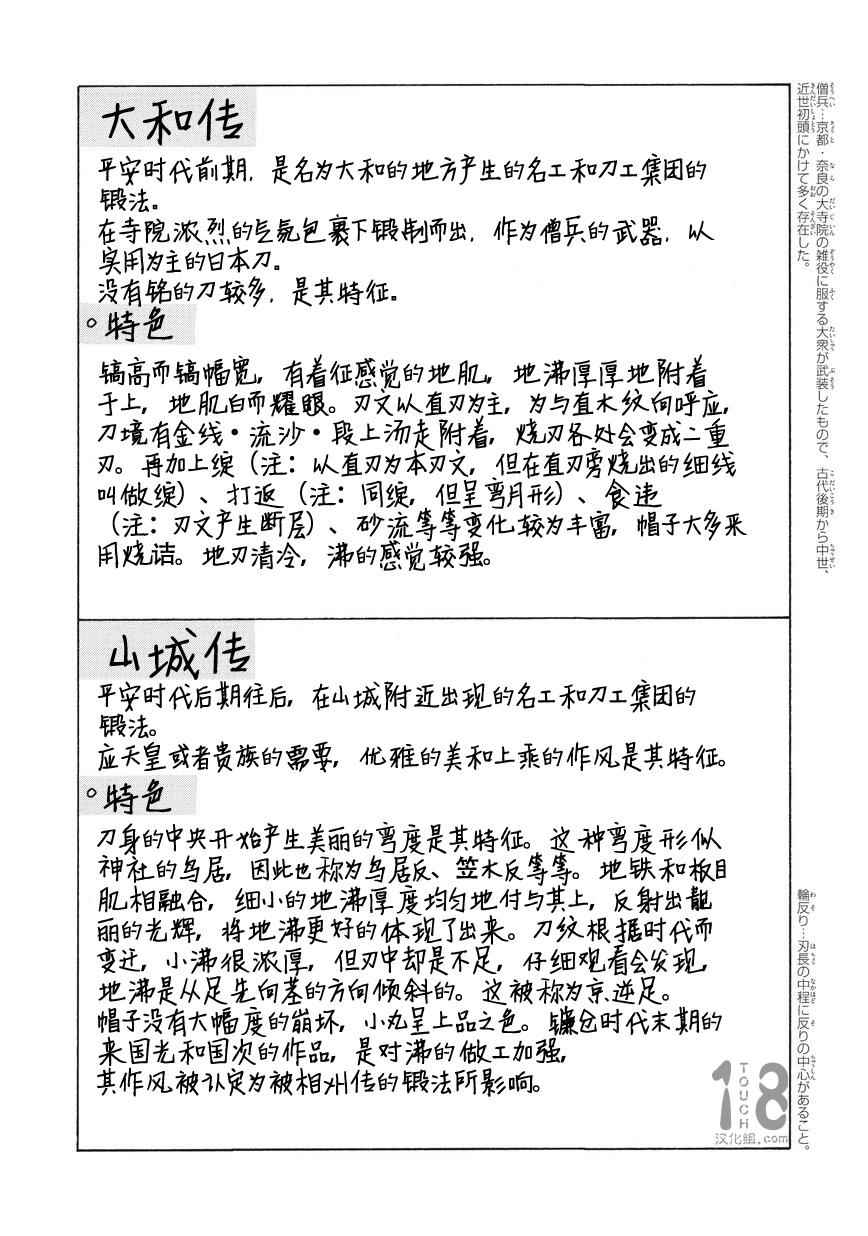 大和传
平安时代前期，是名为大和的地方产生的名工和刀工集团的
锻法。
在寺院浓烈的气氛包裹下锻制而出，作为僧兵的武器，以
实用为主的日本刀。
没有铭的刀较多，是其特征。
。特色
镐高而镐幅宽，有着征感觉的地肌，地沸厚厚地附着
于上，地肌白而耀眼。刃文以直刃为主，为与直木纹向呼应，
刀境有金线·流沙·段上汤走附着，烧刃各处会变成二重
刃。再加上绽（注：以直刃为本刃文，但在直刃旁烧出的细线
叫做绽）、打返（注：同绽，但呈弯月形）、食违
（注：刃文产生断层）、砂流等等变化较为丰富，帽子大多采
用烧诘。地刃清冷，沸的感觉较强。
山城传
平安时代后期往后，在山城附近出现的名工和刀工集团的
锻法。
应天皇或者贵族的需要，优雅的美和上乘的作风是其特征。
。特色
刀身的中央开始产生美丽的弯度是其特征。这种弯度形似
神社的鸟居，因此也称为鸟居反、笠木反等等。地铁和板目
肌相融合，细小的地沸厚度均匀地付与其上，反射出靓
丽的光辉，将地沸更好的体现了出来。刀纹根据时代而
变迁，小沸很浓厚，但刃中却是不足，仔细观看会发现，
地沸是从足先向茎的方向倾斜的。这被称为京逆足。
帽子没有大幅度的崩坏，小丸呈上品之色。镰仓时代末期的
来国光和国次的作品，是对沸的做工加强，
其作风被认定为被相州传的锻法所影响。
僧兵…京都・奈良の大寺院の雑役に服する大衆が武装したもので、古代後期から中世、
近世初頭にかけて多く存在した。
輪反り…刃長の中程に反りの中心があること。
18
TOUCH
汉化組.com